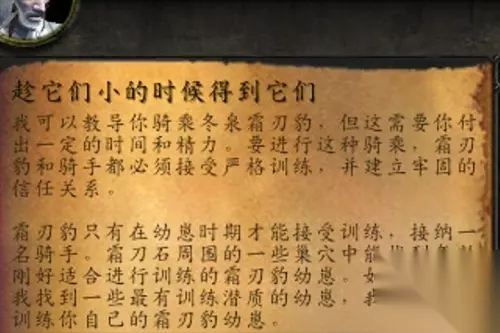 趁它们小的时候得到它们
我可以教导你骑乘冬泉霜刃豹，但这需要你付
出一定的时间和精力。要进行这种骑乘，霜刃
豹和骑手都必须接受严格训练，并建立牢固的
信任关系。
霜刃豹只有在幼崽时期才能接受训练，接纳一
名骑手。霜刀石周围的一些巢穴中能
刚好适合进行训练的霜刃豹幼崽。
我找到一些最有训练潜质的幼崽，
训练你自己的霜刃豹幼崽。